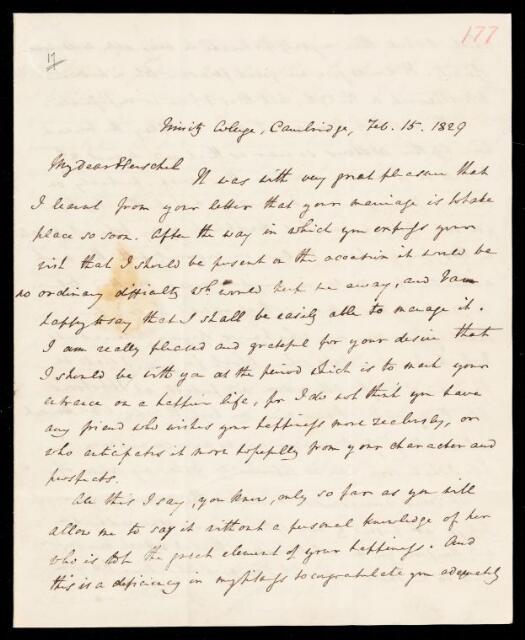 177
17
Trinity College, Cambridge, Feb. 15. 1829
My dear Herschel
It was with very great pleasure that
I learnt from your letter that your marriage is to take
place so soon. After the way in which you express your
wish that I should be present on the occasion it would be
no ordinary difficulty wh. would keep me away, and I am
happy to say that I shall be easily able to manage it.
I am really pleased and grateful for your desire that
I should be with you at the period which is to mark your
entrance on a happier life, for I do not think you have
any friend who wishes your happiness more zealously, or
who anticipates it more hopefully from your character and
prospects.
All this I say, you know, only so far as you will
allow me to say it without a personal knowledge of her
who is to be the great element of your happiness. And
this is a deficiency in my things to congratulate you adequately